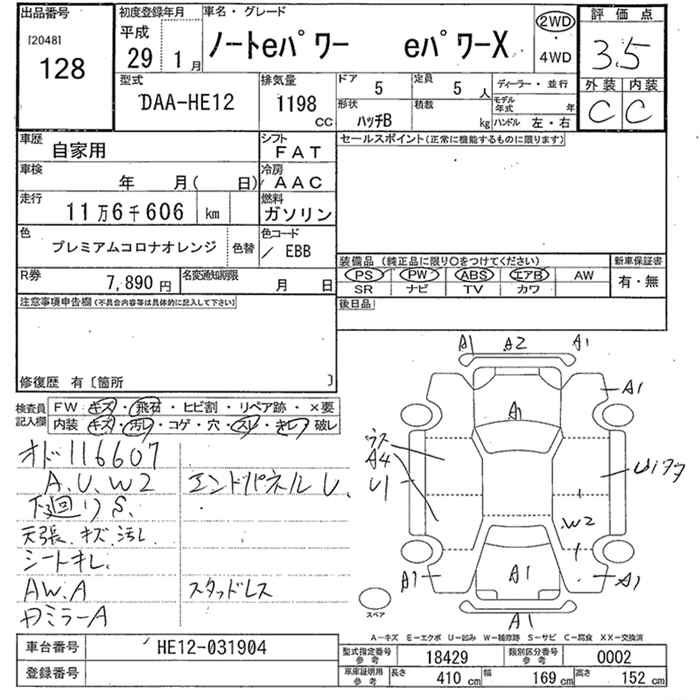 出品番号 初度登録年月 車名・グレード 2WD 評価点
[2048] 平成 ノートeパワー eパワーX ・ 3.5
128 29 1月 4WD 外装 内装
型式 排気量 ドア 定員 ディーラー・並行 C C
DAA-HE12 1198 cc 5 5人 モデル年式 年
形状 積載 ハンドル 左・右
ハッチB kg
車歴 自家用 シフト FAT セールスポイント(正常に機能するものに限ります)
車検 年 月( 日) 冷房 AAC
走行 11万6千606 km 燃料 ガソリン
色 プレミアムコロナオレンジ 色替 色コード / EBB 装備品 (純正品に限り○をつけてください) 新車保証書
PS PW ABS エアB AW 有・無
R券 7,890円 名変通知期限 月 日 SR ナビ TV カワ
注意事項申告欄(不具合内容等は具体的に記入して下さい) 後日品
修復歴 有〔箇所 〕
検査員記入欄 FW キズ・飛石・ヒビ割・リペア跡・×要
内装 キズ・汚レ・コゲ・穴・スレ・キレ・破レ
オド 116607
A.U.W2 エンドパネルU.
下廻りS.
天張.キズ.汚し
シートキレ
AW.A スタッドレス
カミラーA
A1 A2 A1
A1
A1
A4
U1
W2
A1 A1 A1
A1
スペア
A−キズ E−エクボ U−凹み W−補修跡 S−サビ C−腐食 XX−交換済
車台番号 HE12-031904 型式指定番号参考 18429 類別区分番号参考 0002
登録番号 車庫証明用参考 長さ 410cm 幅 169cm 高さ 152cm